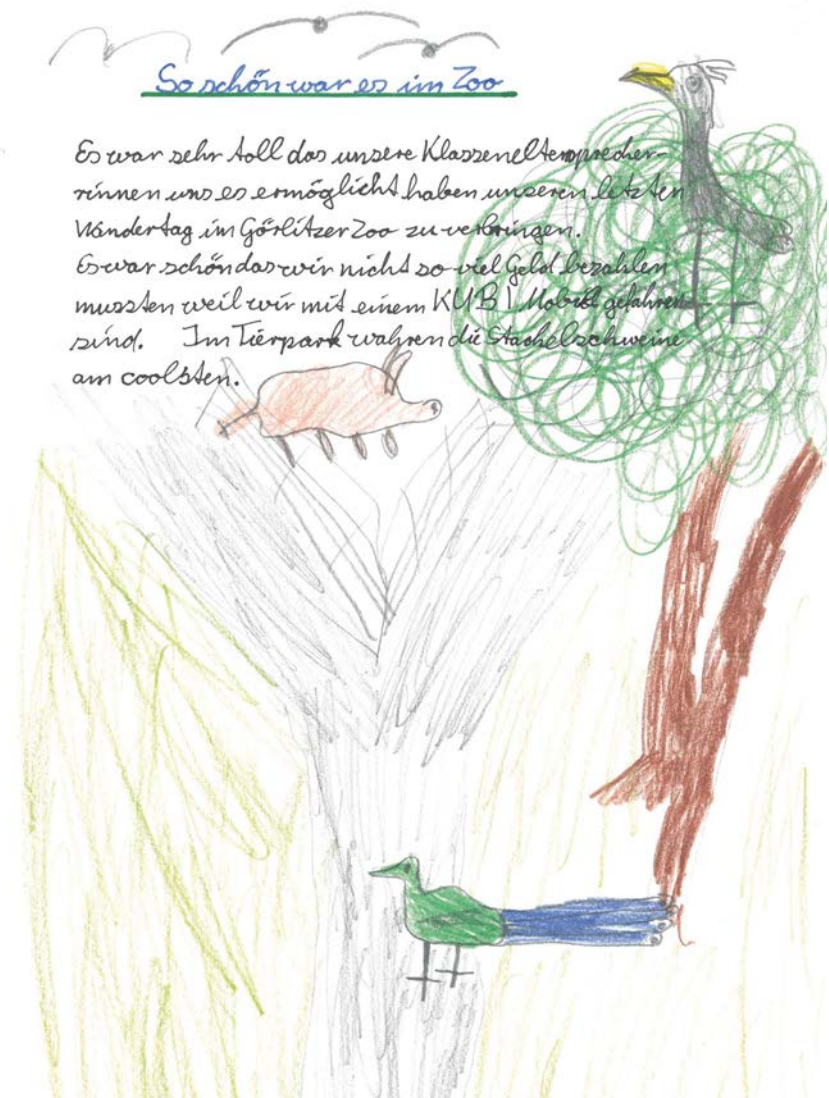 So schön war es im Zoo
Es war sehr toll das unsere Klassenelternsprecher-
rinnen uns es ermöglicht haben unseren letzten
Wandertag im Görlitzer Zoo zu verbringen.
Es war schön das wir nicht so viel Geld bezahlen
mussten weil wir mit einem KUBI Mobil gefahren
sind. Im Tierpark wahren die Stachelschweine
am coolsten.